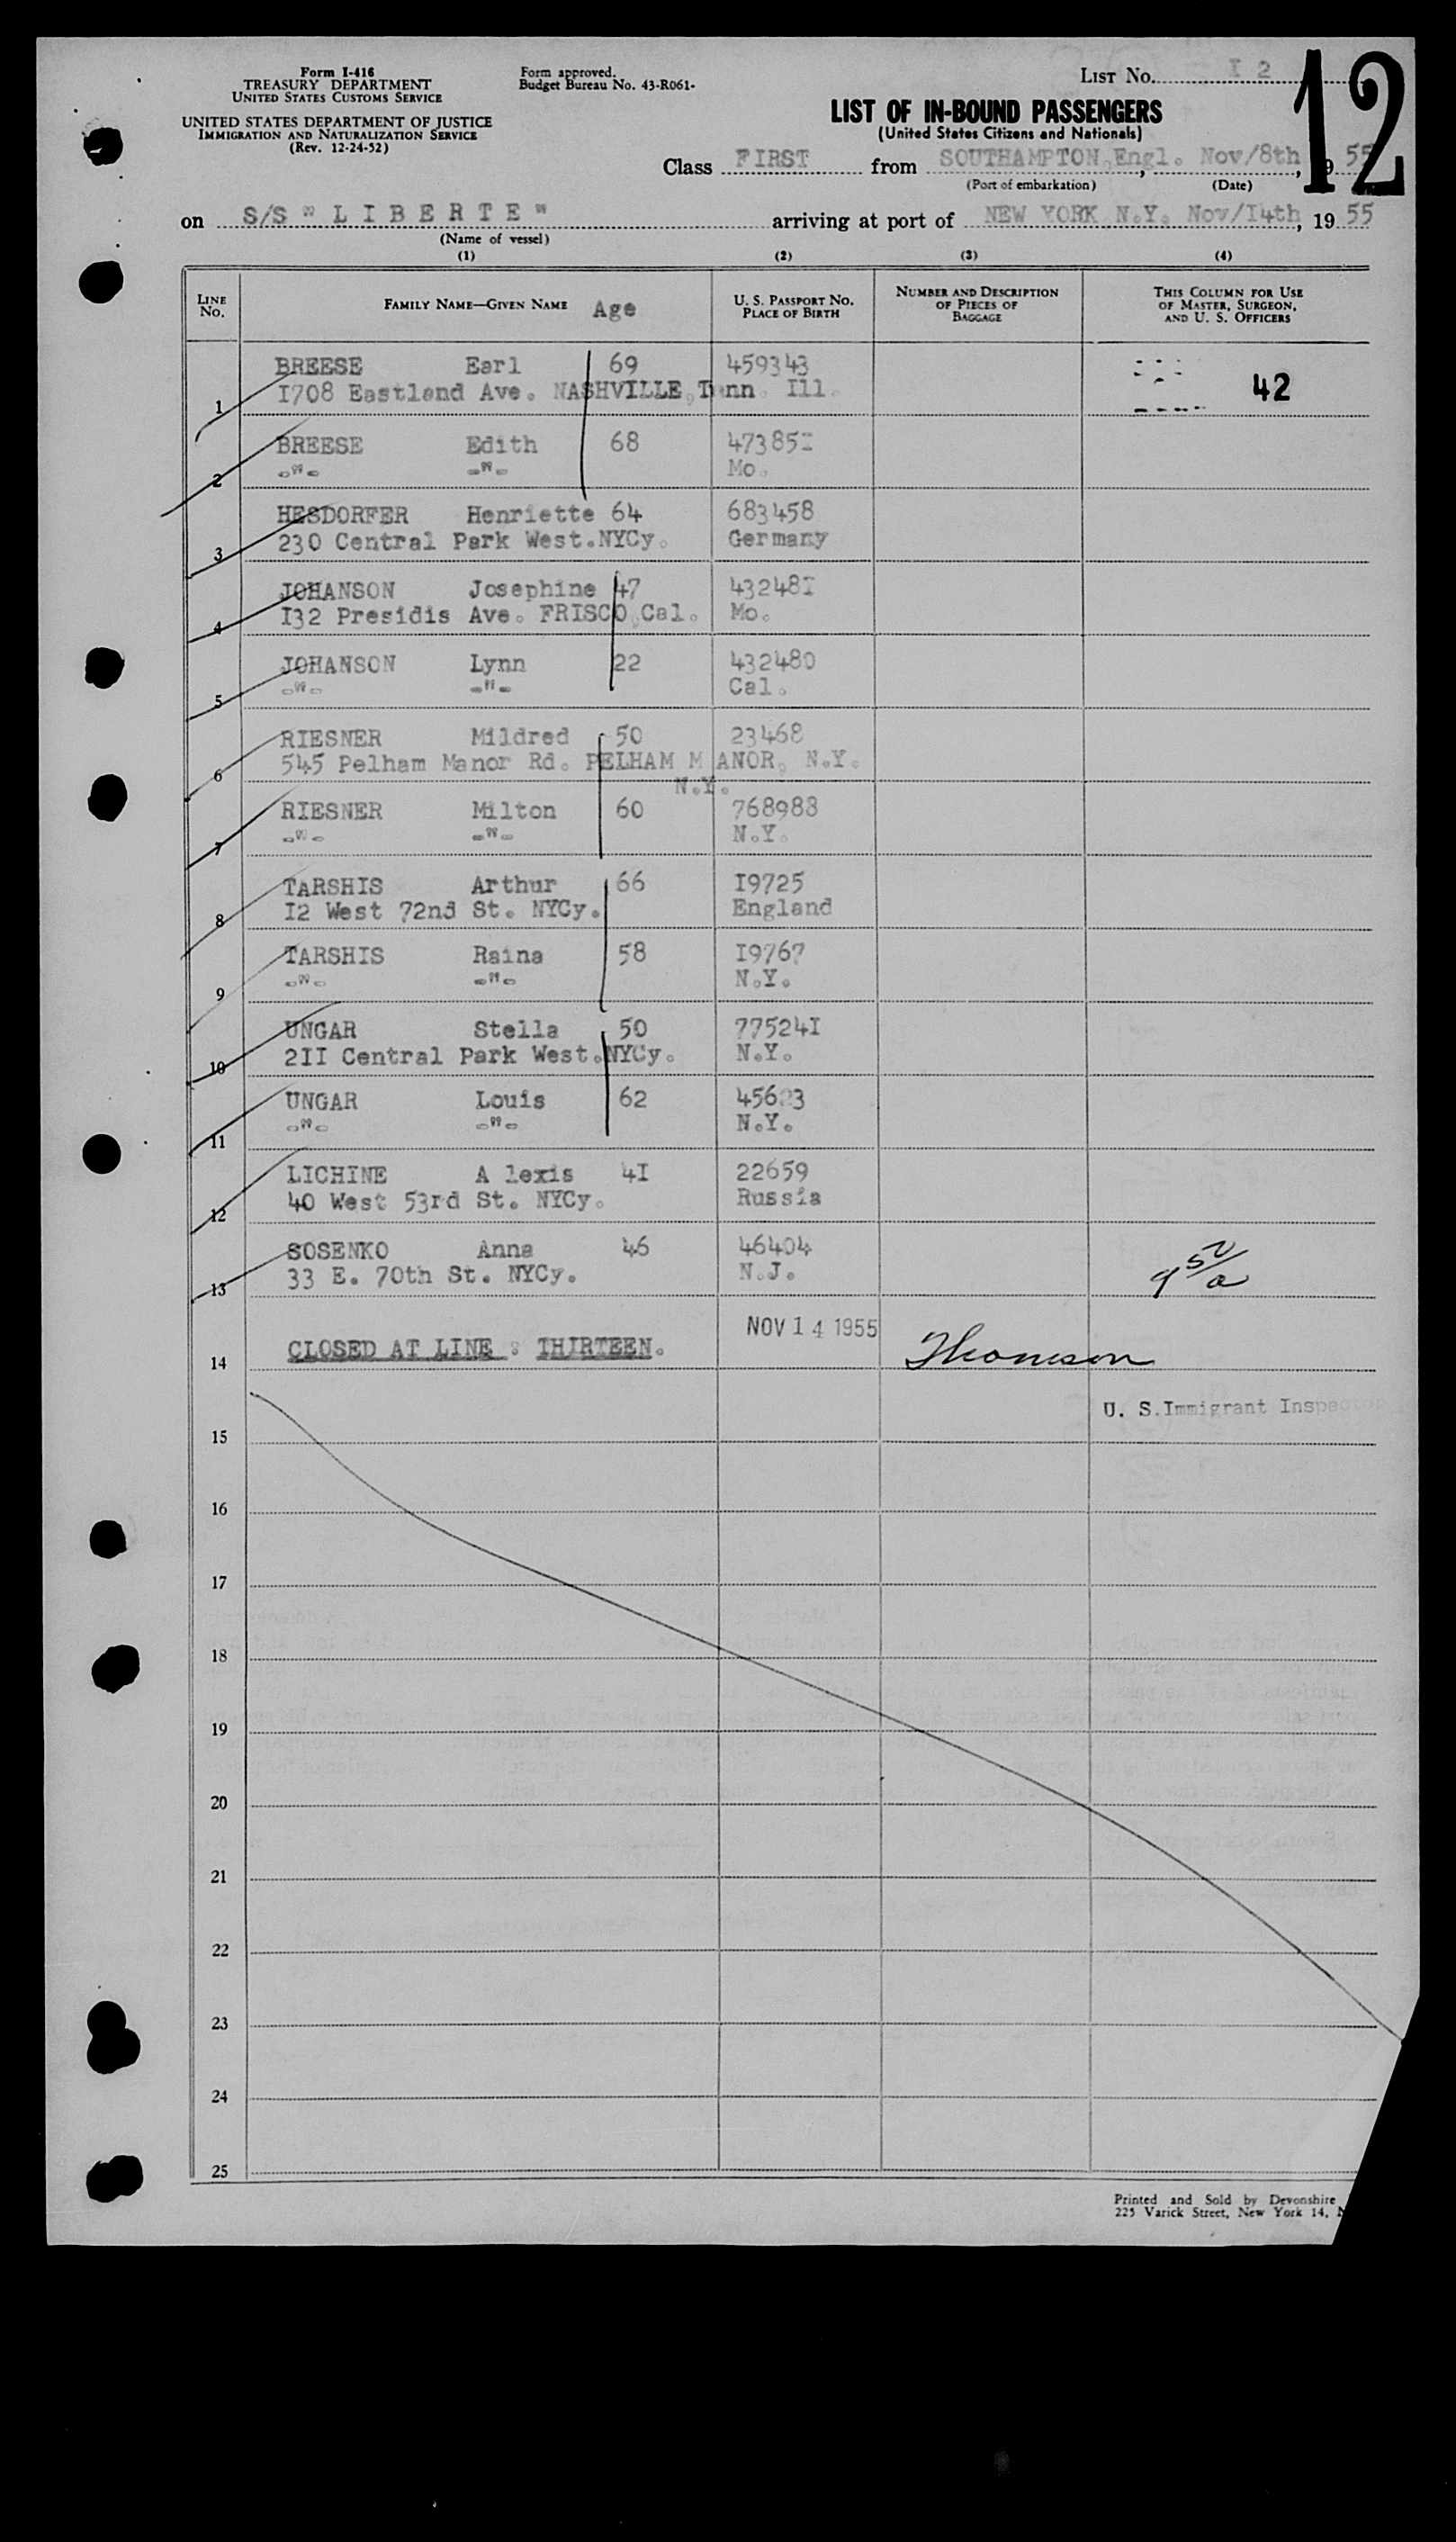 Form I-416
TREASURY DEPARTMENT
UNITED STATES CUSTOMS SERVICE
UNITED STATES DEPARTMENT OF JUSTICE
IMMIGRATION AND NATURALIZATION SERVICE
(Rev. 12-24-52)
Form approved.
Budget Bureau No. 43-R061-
LIST NO. I 2
12
LIST OF IN-BOUND PASSENGERS
(United States Citizens and Nationals)
Class FIRST from SOUTHAMPTON,Engl. Nov/8th, 1955
(Port of embarkation) (Date)
on S/S " L I B E R T E " arriving at port of NEW YORK N.Y. Nov/I4th, 1955
(Name of vessel)
(1) (2) (3) (4)
LINE NO. FAMILY NAME—GIVEN NAME Age U. S. PASSPORT NO. PLACE OF BIRTH NUMBER AND DESCRIPTION OF PIECES OF BAGGAGE THIS COLUMN FOR USE OF MASTER, SURGEON, AND U. S. OFFICERS
BREESE Earl 69 459343
1 I708 Eastland Ave. NASHVILLE,Tenn. Ill. 42
BREESE Edith 68 47385I
2 -"- -"- Mo.
HESDORFER Henriette 64 683458
3 230 Central Park West.NYCy. Germany
JOHANSON Josephine 47 43248I
4 I32 Presidis Ave. FRISCO,Cal. Mo.
JOHANSON Lynn 22 432480
5 -"- -"- Cal.
RIESNER Mildred 50 23468
6 545 Pelham Manor Rd. PELHAM MANOR, N.Y.
N.Y.
RIESNER Milton 60 768988
7 -"- -"- N.Y.
TARSHIS Arthur 66 I9725
8 I2 West 72nd St. NYCy. England
TARSHIS Raina 58 I9767
9 -"- -"- N.Y.
UNGAR Stella 50 77524I
10 2II Central Park West.NYCy. N.Y.
UNGAR Louis 62
11 -"- -"- N.Y.
LICHINE A lexis 4I 22659
12 40 West 53rd St. NYCy. Russia
SOSENKO Anna 46 46404
13 33 E. 70th St. NYCy. N.J.
NOV 14 1955
14 CLOSED AT LINE : THIRTEEN. Thomson
U. S.Immigrant Inspector
15
16
17
18
19
20
21
22
23
24
25
Printed and Sold by Devonshire
225 Varick Street, New York 14,